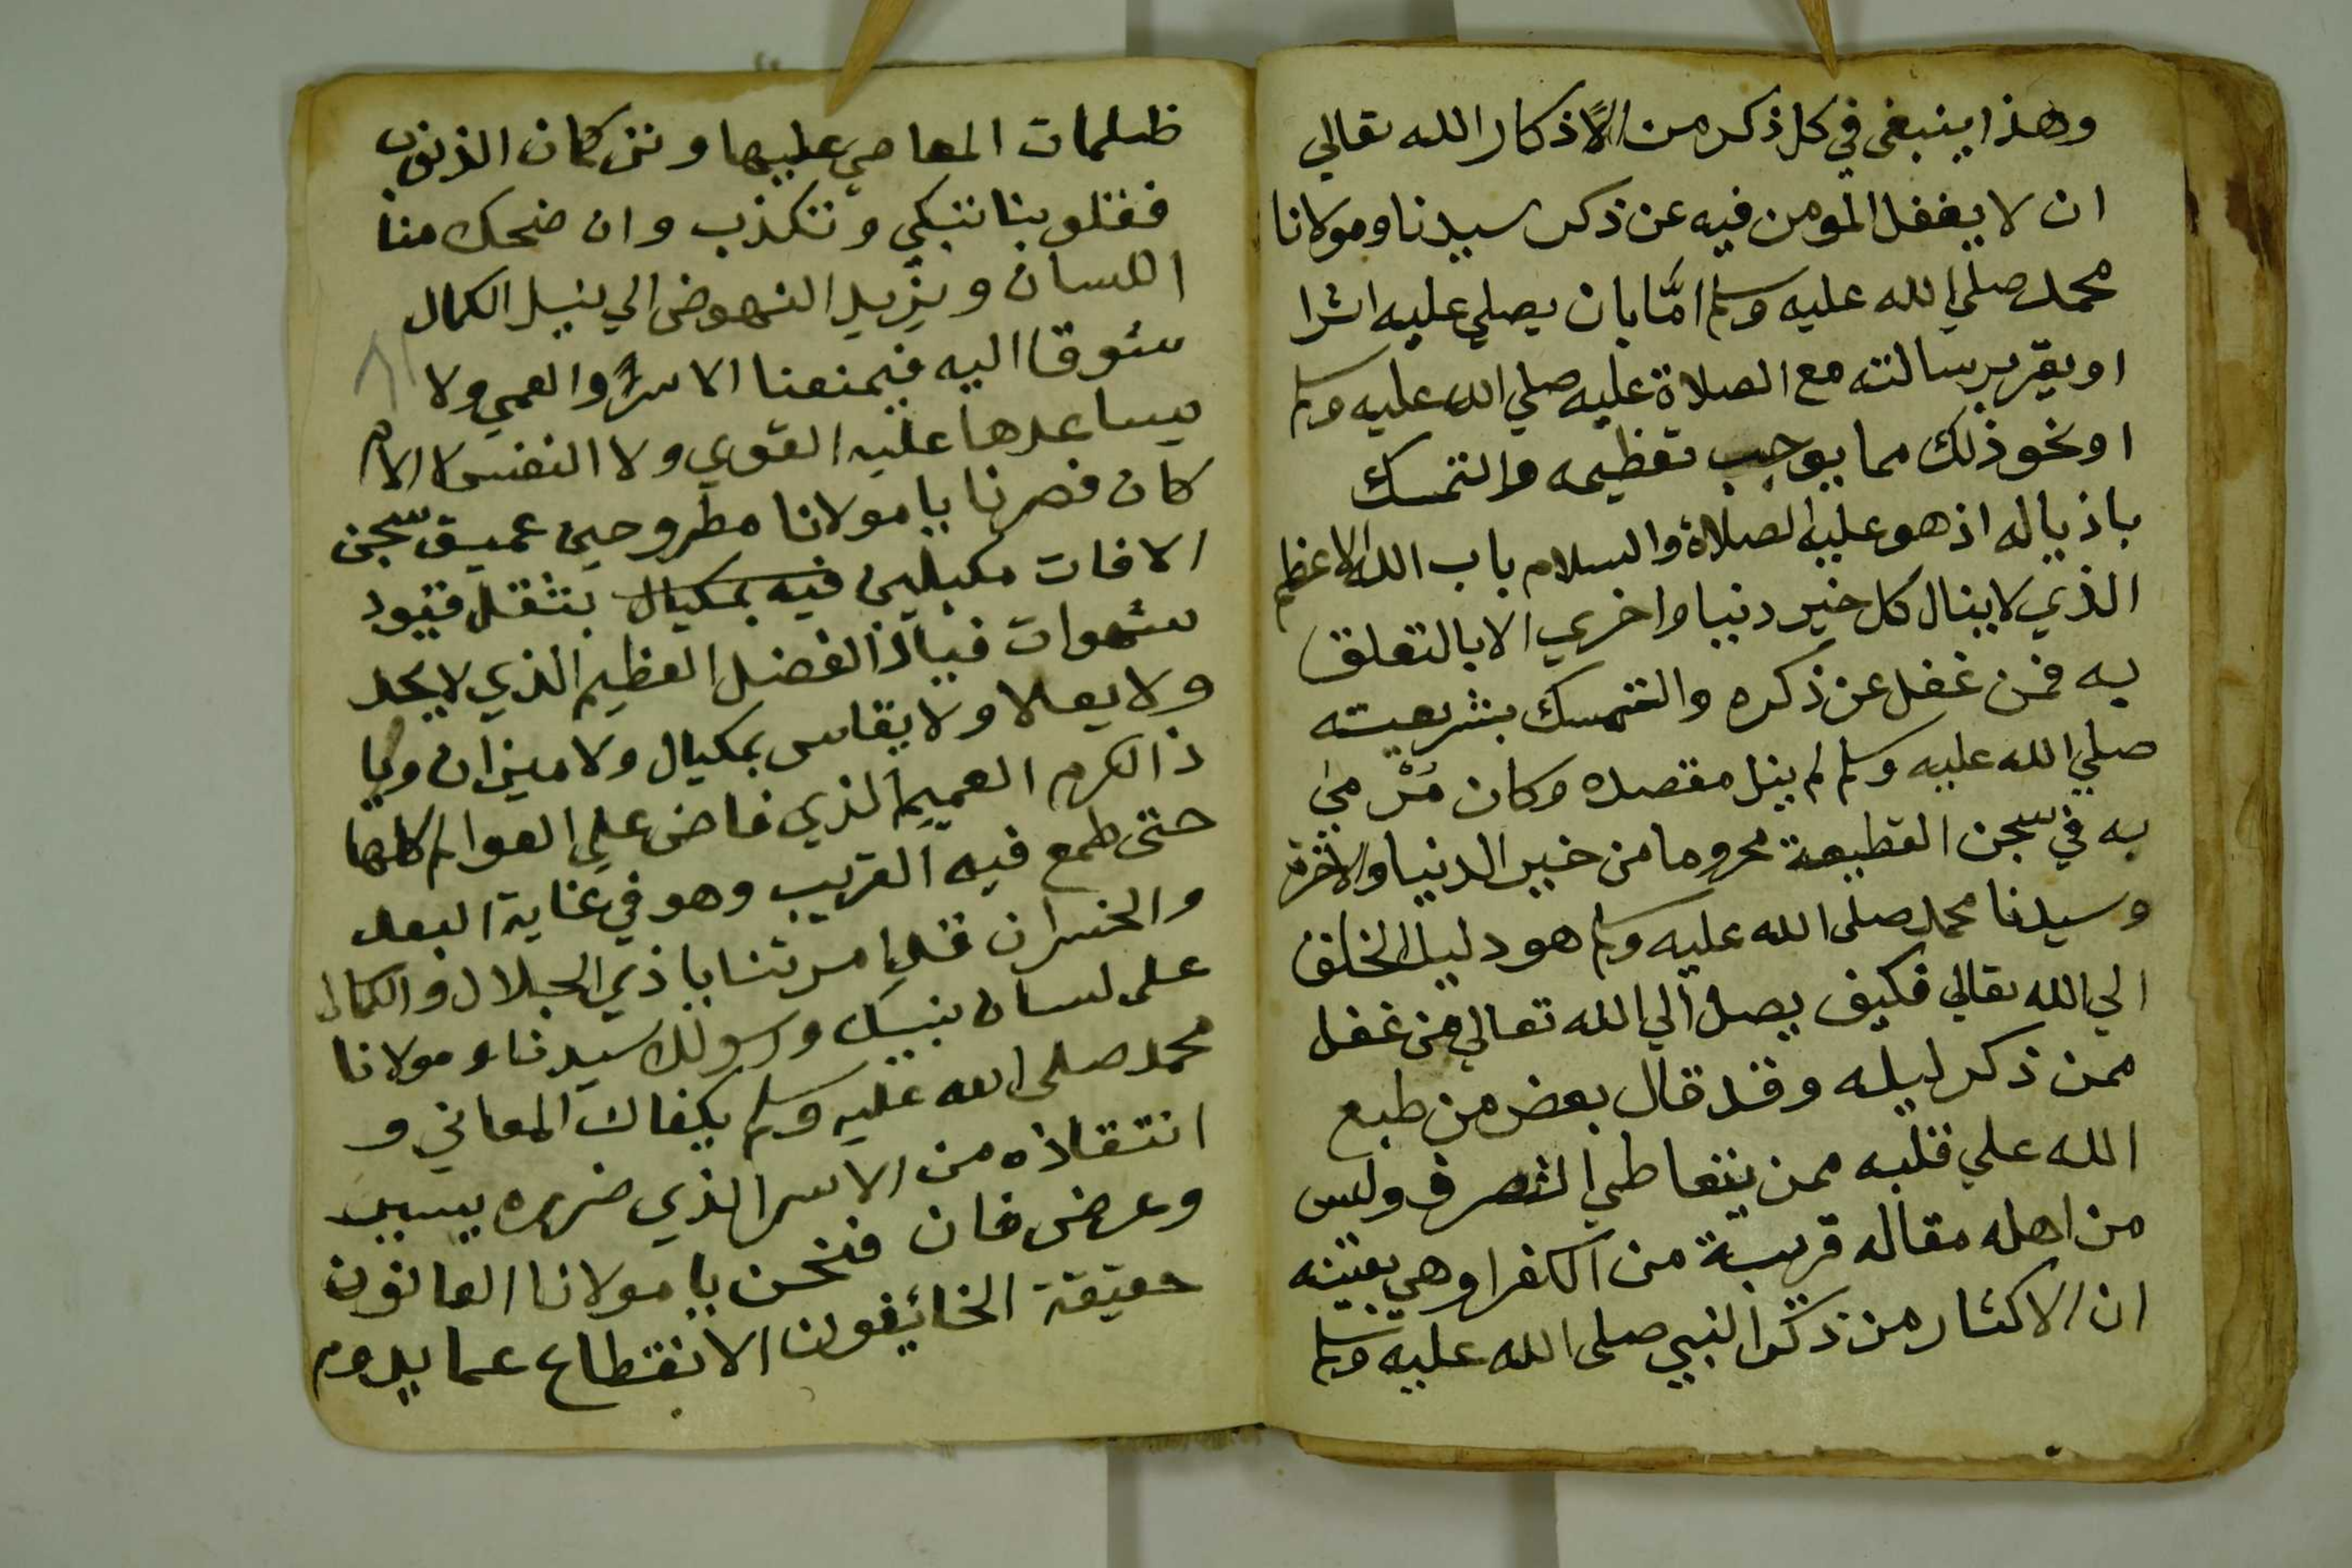 وهذا ينبغى في كل ذكر من الاذكار الله تعالي
ان لا يغفل المومن فيه عن ذكر سيدنا ومولانا
محمد صلي الله عليه وسلم امّا بان يصلي عليه اثرا
او يقر برسالته مع الصلاة عليه صلي الله عليه وسلم
او نحو ذلك مما يوجب تعظيمه والتمسك
باذياله اذ هو عليه الصلاة والسلام باب الله الاعظم
الذي لا ينال كل خير دنيا واخري الا بالتعلق
به فمن غفل عن ذكره والتمسك بشريعته
صلي الله عليه وسلم لم ينل مقصده وكان مَرْمي
به في سجن القطيعة محروما من خير الدنيا والاخرة
وسيدنا محمد صلى الله عليه وسلم هو دليل الخلق
الي الله تعالي فكيف يصل الي الله تعالي من غفل
ممن ذكر ليله وقد قال بعض من طبع
الله علي قلبه ممن يتعاطي التصرف وليس
من اهله مقاله قريبة من الكفر او هي بعينه
ان الاكثار من ذكر النبي صلى الله عليه وسلم
ظلمات المعاصي عليها وتزكمان الذنوب
فقلوبنا تبكي وتكذب وان ضحك منا
اللسان ويزيد النهوض الي نيل الكمال
شوقا اليه فيمنعنا الاسر والعمي ولا
يساعدها عليه القوي ولا النفس لا الام
كان فصرنا يا مولانا مطروحين عميق سجن
الافات مكبلين فيه بمكيال بثقل قيود
شهوات فياذا الفضل العظيم الذي لا يحد
ولا يعلا ولا يقاس بمكيال ولا ميزان ويا
ذا الكرم العميم الذي فاض علي العوالم كلها
حتى طمع فيه القريب وهو في غاية البعد
والخسران قد امرتنا يا ذي الجلال والكمال
على لسان نبيك ورسولك سيدنا ومولانا
محمد صلى الله عليه وسلم بكفاك المعاني و
انتقاذه من الاسر الذي ضرره بسبب
وعرض فان فنحن يا مولانا العانون
حقيقة الخائفون الانقطاع عما يدوم